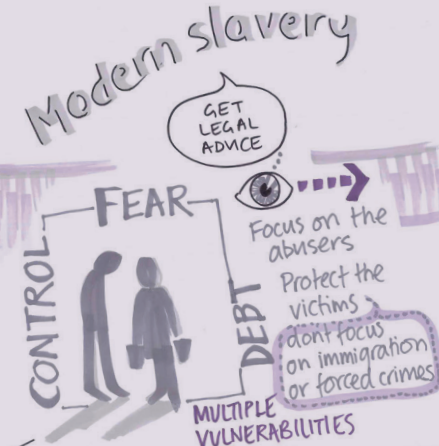 Modern slavery
GET
LEGAL
ADVICE
FEAR
CONTROL
DEBT
Focus on the
abusers
Protect the
victims
don't focus
on immigration
or forced crimes
MULTIPLE
VULNERABILITIES